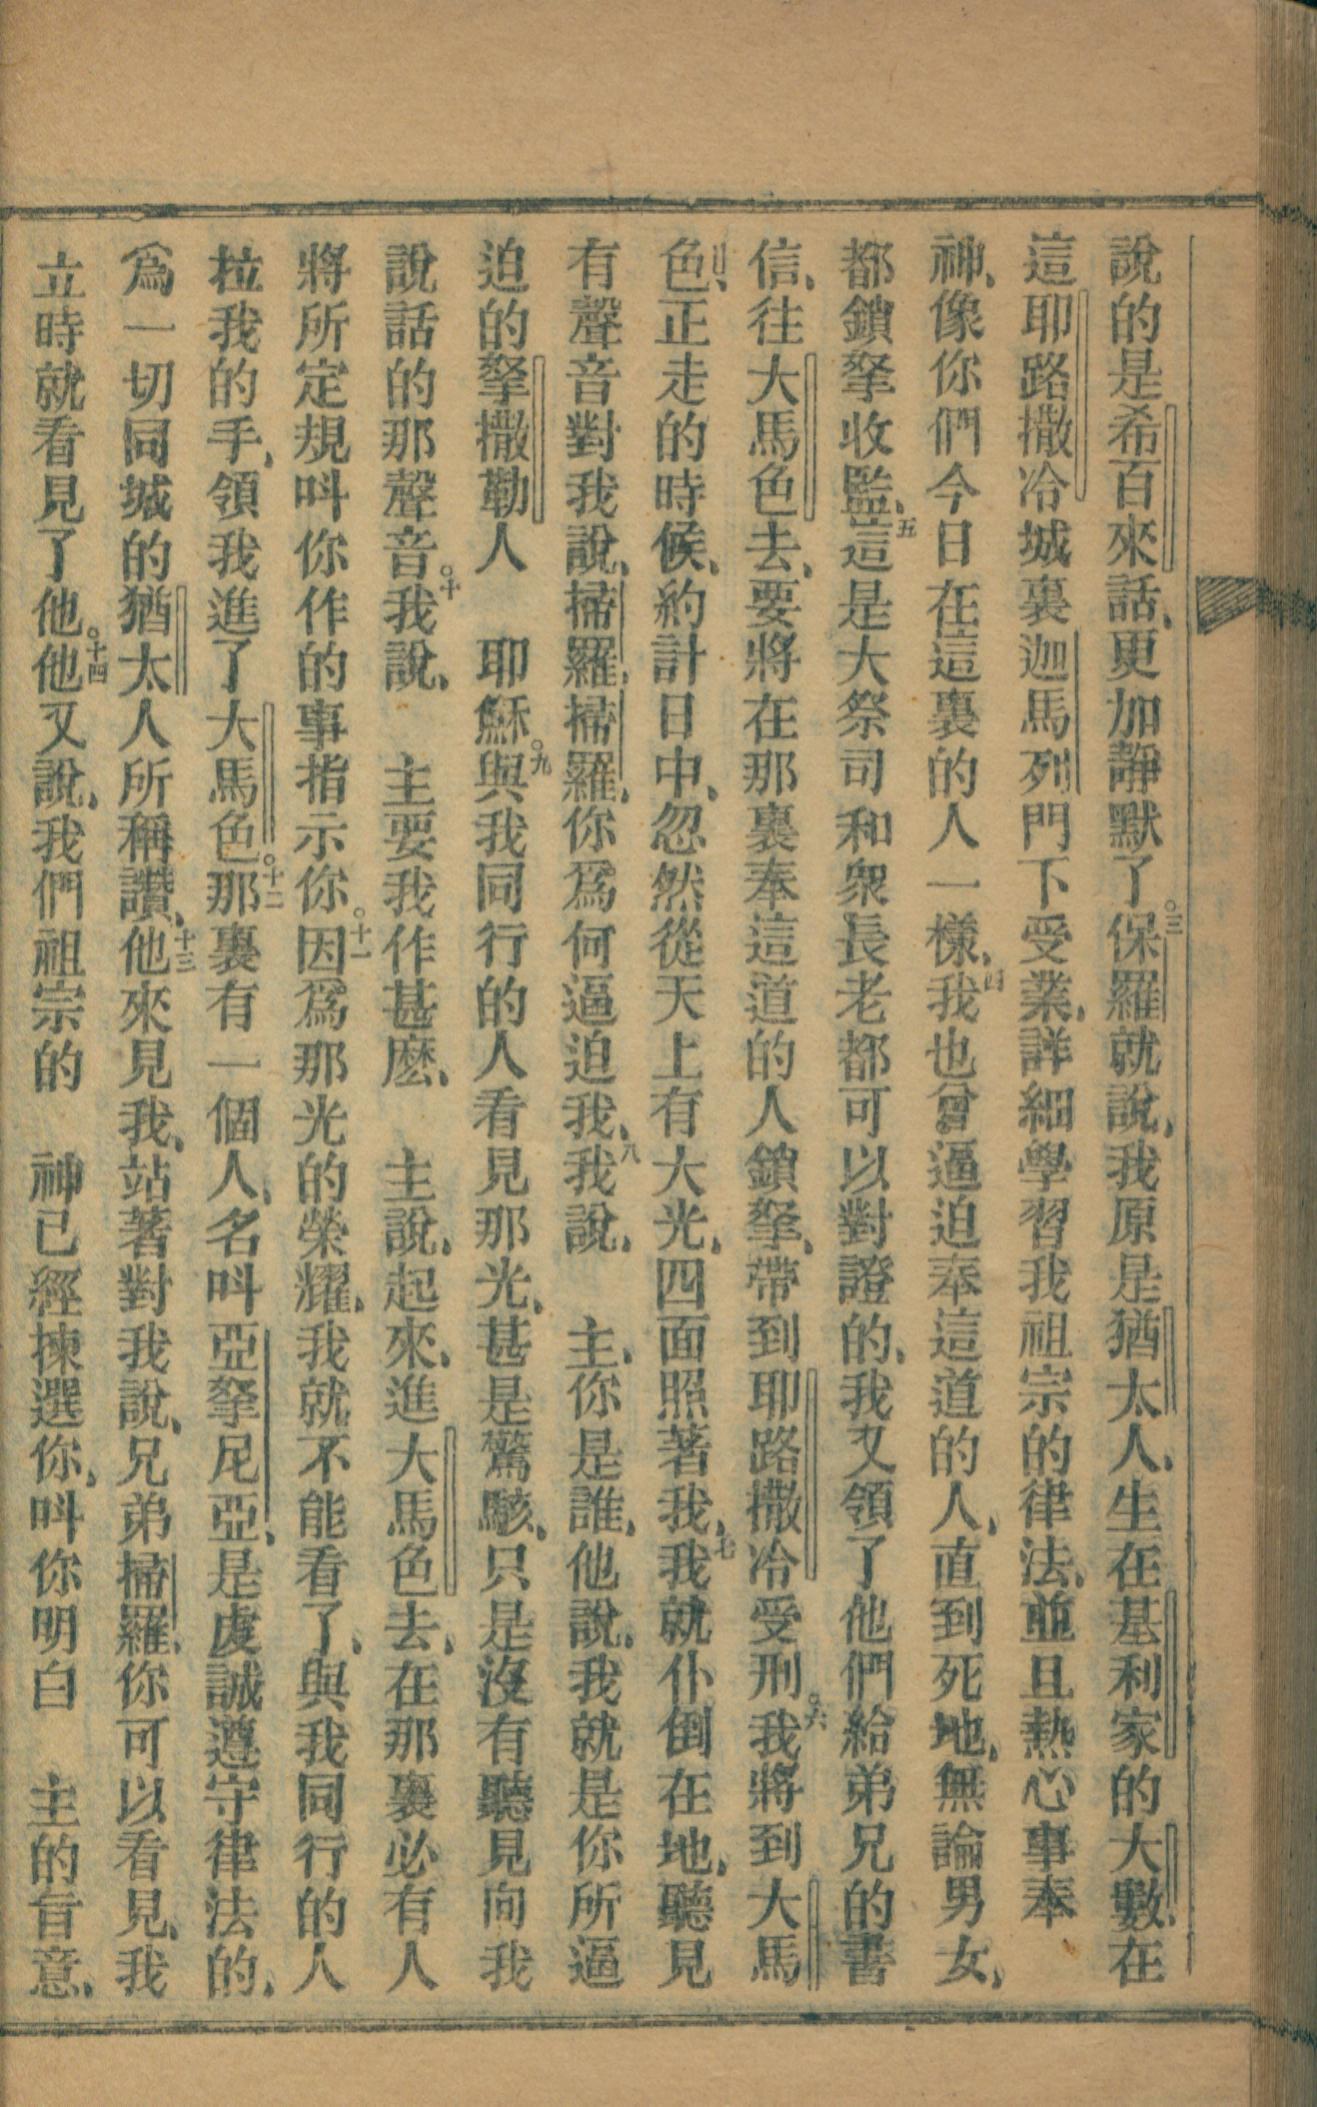 說的是希百來話、更加靜默了。三保羅就說、我原是猶太人、生在基利家的大數、在
這耶路撒冷城裏迦馬列門下受業、詳細學習我祖宗的律法、並且熱心事奉
神、像你們今日在這裏的人一樣、四我也曾逼迫奉這道的人、直到死地、無論男女、
都鎖拏收監、五這是大祭司和衆長老都可以對證的、我又領了他們給弟兄的書
信、往大馬色去、要將在那裏奉這道的人鎖拏、帶到耶路撒冷受刑。六我將到大馬
色、正走的時候、約計日中、忽然從天上有大光、四面照著我、七我就仆倒在地、聽見
有聲音對我說、掃羅、掃羅、你爲何逼迫我、八我說、　主、你是誰、他說、我就是你所逼
迫的拏撒勒人　耶穌。九與我同行的人看見那光、甚是驚駭、只是沒有聽見向我
說話的那聲音。十我說、　主要我作甚麽、　主說、起來、進大馬色去、在那裏必有人
將所定規呌你作的事指示你。十一因爲那光的榮耀、我就不能看了、與我同行的人
拉我的手、領我進了大馬色。十二那裏有一個人、名呌亞拏尼亞、是虔誠遵守律法的、
爲一切同城的猶太人所稱讚、十三他來見我、站著對我說、兄弟掃羅、你可以看見、我
立時就看見了他。十四他又說、我們祖宗的　神已經揀選你、呌你明白　主的旨意、